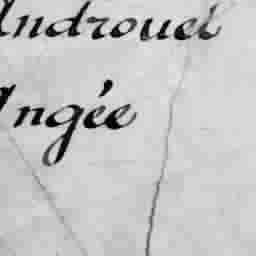 Androuet
Angée